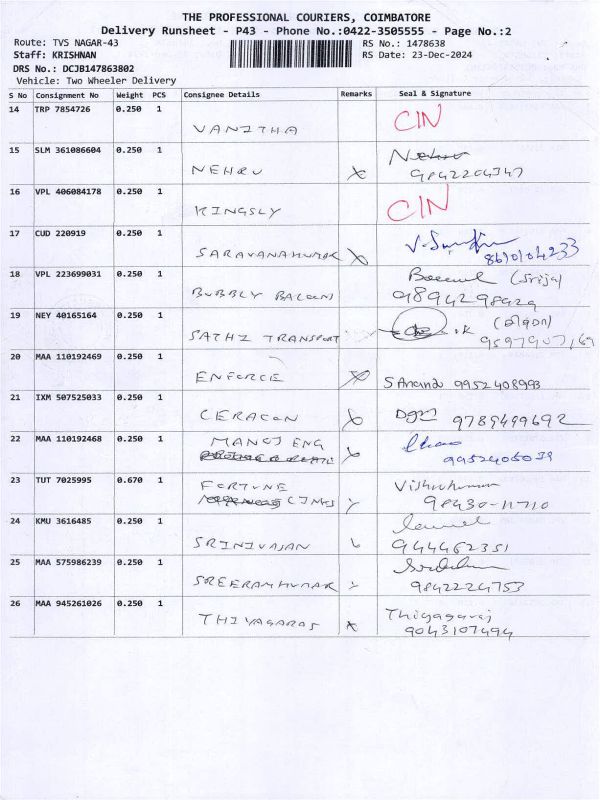 THE PROFESSIONAL COURIERS, COIMBATORE
Delivery Runsheet - P43 - Phone No.:0422-3505555 - Page No.:2
Route: TVS NAGAR-43 RS No.: 1478638
Staff: KRISHNAN RS Date: 23-Dec-2024
DRS No.: DCJB147863802
Vehicle: Two Wheeler Delivery
S No Consignment No Weight PCS Consignee Details Remarks Seal & Signature
14 TRP 7854726 0.250 1
VANITHA CIN
15 SLM 361086604 0.250 1
NEHRU Nehru
9842204347
16 VPL 406084178 0.250 1
KINGSLY CIN
17 CUD 220919 0.250 1
SARAVANAKUMAR
8610104233
18 VPL 223699031 0.250 1 (Srija)
BUBBLY BALOON 9894298929
19 NEY 40165164 0.250 1
SATHI TRANSPORT
20 MAA 110192469 0.250 1
ENFORCE S Anand 9952408993
21 IXM 507525033 0.250 1
CERACON 9789499692
22 MAA 110192468 0.250 1
MANOJ ENG
9952406039
23 TUT 7025995 0.670 1
FORTUNE Vishnukumar
98430-11710
24 KMU 3616485 0.250 1
SRINIVASAN 944462351
25 MAA 575986239 0.250 1
SREERAMKUMAR 9842224753
26 MAA 945261026 0.250 1
THIYAGARAS Thiyagaraj
9043107494